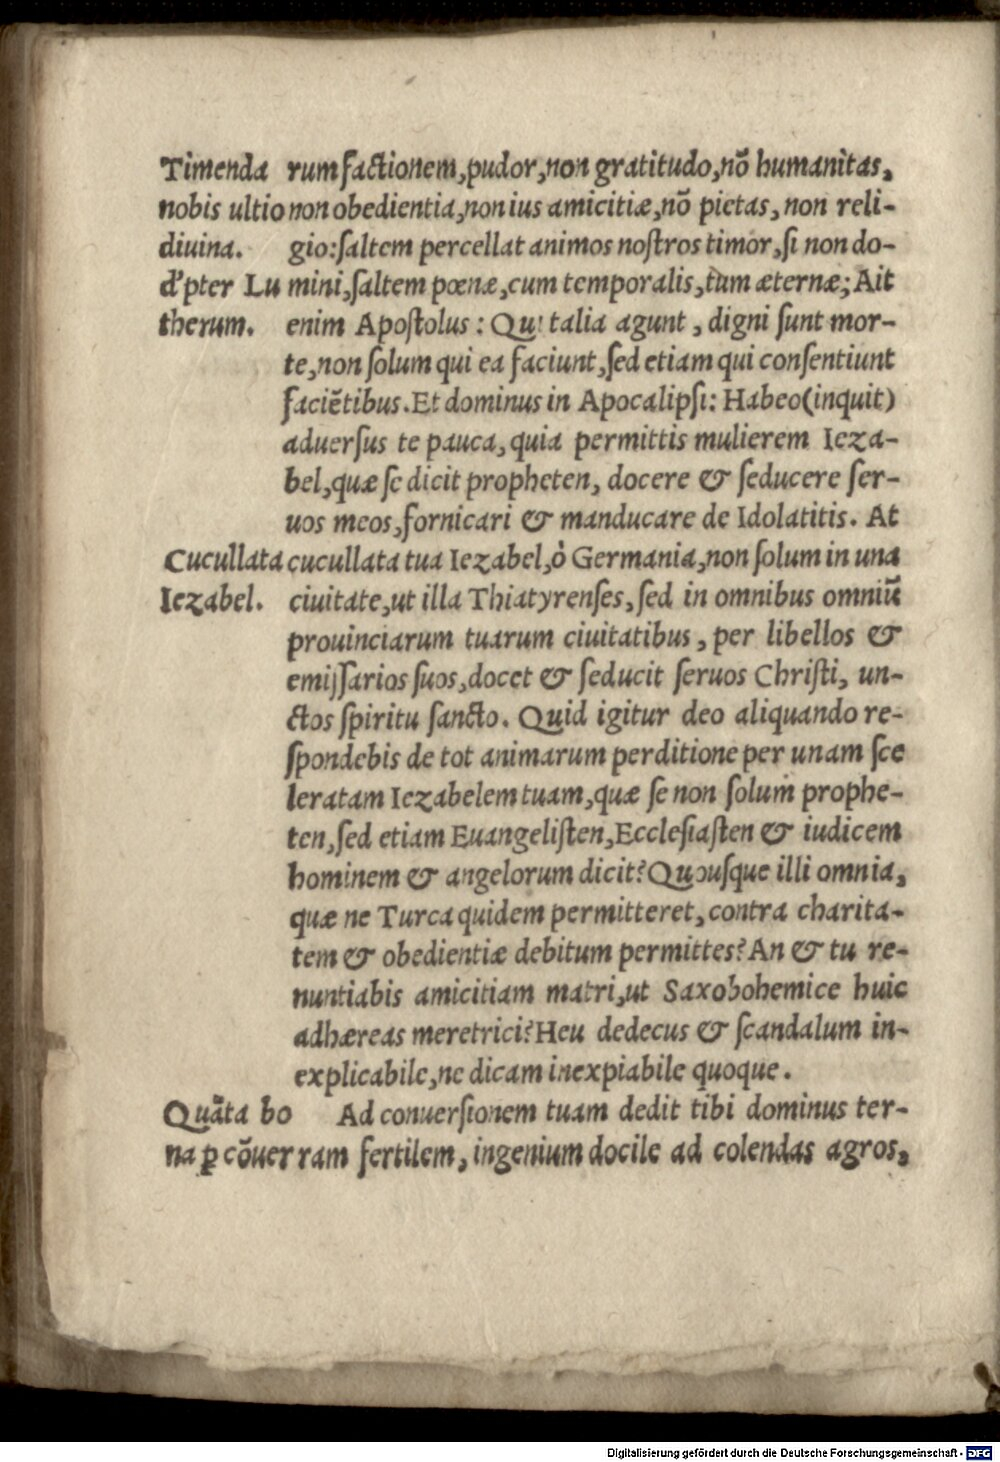 Timenda rum factionem, pudor, non gratitudo, nō humanitas,
nobis ultio non obedientia, non ius amicitiæ, nō pietas, non reli-
diuina. gio: saltem percellat animos nostros timor, si non do-
d'pter Lu mini, saltem pœnæ, cum temporalis, tum æternæ; Ait
therum. enim Apostolus: Qui talia agunt, digni sunt mor-
te, non solum qui ea faciunt, sed etiam qui consentiunt
faciētibus. Et dominus in Apocalipsi: Habeo (inquit)
aduersus te pauca, quia permittis mulierem Ieza-
bel, quæ se dicit propheten, docere & seducere ser-
uos meos, fornicari & manducare de Idolatitis. At
Cucullata cucullata tua Iezabel, ò Germania, non solum in una
Iezabel. ciuitate, ut illa Thiatyrenses, sed in omnibus omniū
prouinciarum tuarum ciuitatibus, per libellos &
emissarios suos, docet & seducit seruos Christi, un-
ctos spiritu sancto. Quid igitur deo aliquando re-
spondebis de tot animarum perditione per unam sce
leratam Iezabelem tuam, quæ se non solum prophe-
ten, sed etiam Euangelisten, Ecclesiasten & iudicem
hominem & angelorum dicit? Quousque illi omnia,
quæ ne Turca quidem permitteret, contra charita-
tem & obedientiæ debitum permittes? An & tu re-
nuntiabis amicitiam matri, ut Saxobohemice huic
adhæreas meretrici? Heu dedecus & scandalum in-
explicabile, ne dicam inexpiabile quoque.
Quāta bo Ad conuersionem tuam dedit tibi dominus ter-
na ꝑ cōuer ram fertilem, ingenium docile ad colendas agros,
Digitalisierung gefördert durch die Deutsche Forschungsgemeinschaft - DFG